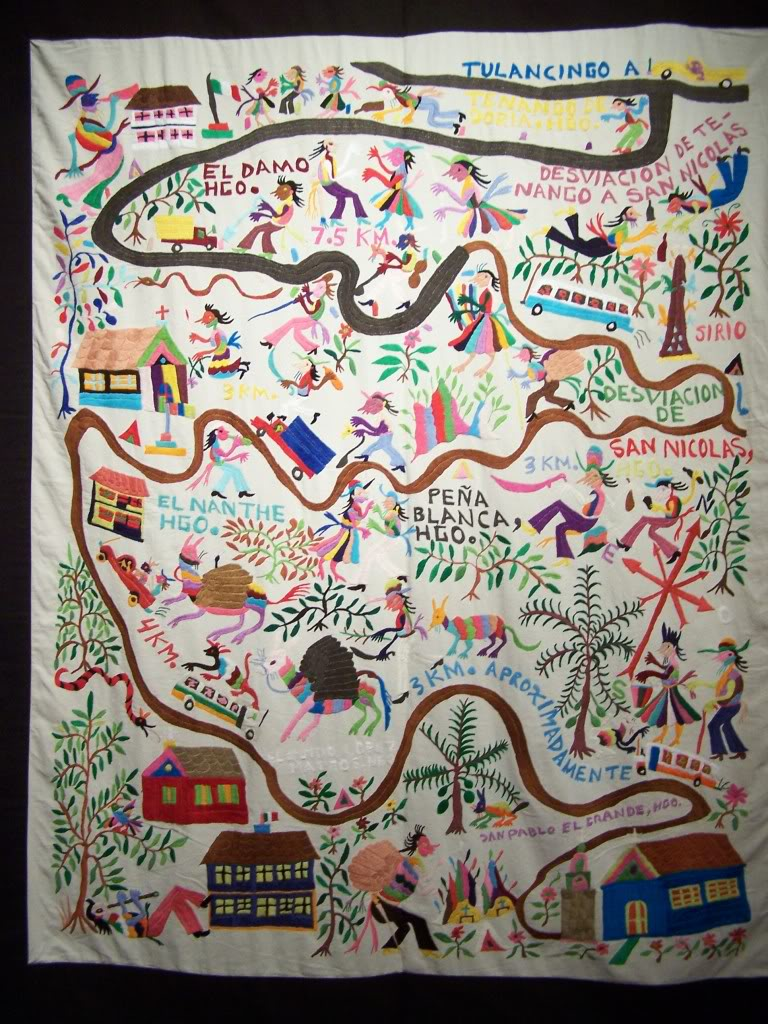 TULANCINGO A
TENANGO DE
DORIA, HGO.
DESVIACION DE TE-
NANGO A SAN NICOLAS
EL DAMO
HGO.
7.5 KM.
SIRIO
3 KM.
DESVIACION
DE
SAN NICOLAS,
HGO.
3 KM.
EL NANTHE
HGO.
PEÑA
BLANCA,
HGO.
N
E
S
4 KM.
3 KM. APROXIMADAMENTE
SAN PABLO EL GRANDE, HGO.